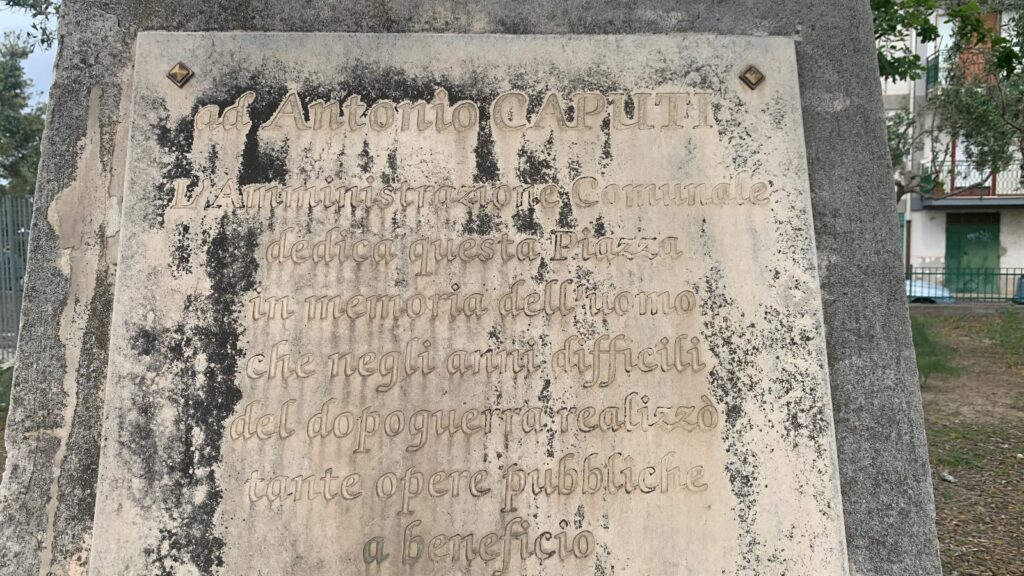 ad Antonio CAPUTI
L'Amministrazione Comunale
dedica questa Piazza
in memoria dell'uomo
che negli anni difficili
del dopoguerra realizzò
tante opere pubbliche
a beneficio